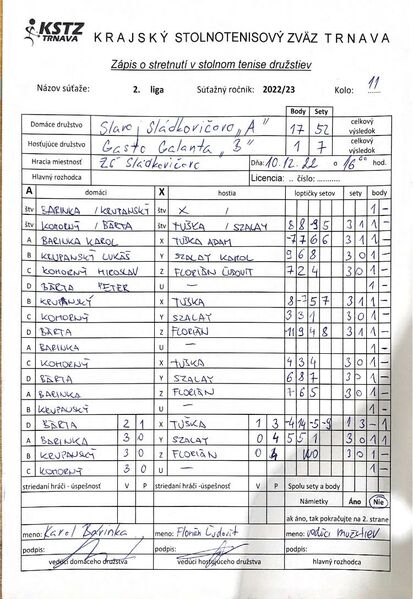 KSTZ TRNAVA KRAJSKÝ STOLNOTENISOVÝ ZVÄZ TRNAVA
Zápis o stretnutí v stolnom tenise družstiev
Názov súťaže: 2. liga Súťažný ročník: 2022/23 Kolo: 11
Body Sety
Domáce družstvo Slavoj Sládkovičovo "A" 17 52 celkový výsledok
Hosťujúce družstvo Gasto Galanta "B" 1 7 celkový výsledok
Hracia miestnosť ZŠ Sládkovičovo Dňa: 10.12.22 o 16 00 hod.
Hlavný rozhodca Licencia: .. číslo: ...........
A domáci X hostia loptičky setov sety body
štv BARINKA / KRUPANSKÝ X / 1 -
štv KOMORNÝ / BÁRTA TUŠKA / SZALAY 8 8 -9 5 3 1 1 -
A BARINKA KAROL X TUŠKA ADAM -7 7 6 6 3 1 1 -
B KRUPANSKÝ LUKÁŠ Y SZALAY KAROL 9 6 8 3 0 1 -
C KOMORNÝ MIROSLAV Z FLORIÁN ĽUDOVIT 7 2 4 3 0 1 -
D BÁRTA PETER U — 1 -
B KRUPANSKÝ X TUŠKA 8 -7 5 7 3 1 1 -
C KOMORNÝ Y SZALAY 3 3 1 3 0 1 -
D BÁRTA Z FLORIÁN -11 9 4 8 3 1 1 -
A BARINKA U — 1 -
C KOMORNÝ X TUŠKA 4 3 4 3 0 1 -
D BÁRTA Y SZALAY 6 8 7 3 0 1 -
A BARINKA Z FLORIÁN 7 6 5 3 0 1 -
B KRUPANSKÝ U — 1 -
D BÁRTA 2 1 X TUŠKA 1 3 -4 14 -5 -9 1 3 - 1
A BARINKA 3 0 Y SZALAY 0 4 5 5 1 3 0 1
B KRUPANSKÝ 3 0 Z FLORIÁN 0 4 WO 3 0 1 -
C KOMORNÝ 3 0 U — 1 -
striedaní hráči - úspešnosť V P striedaní hráči -úspešnosť V P Spolu sety a body
Námietky Áno Nie
ak áno, tak pokračujte na 2. strane
meno: Karol Barinka meno: Florián Ľudovit meno: vedúci mužstiev
podpis: podpis: podpis:
vedúci domáceho družstva vedúci hosťujúceho družstva hlavný rozhodca